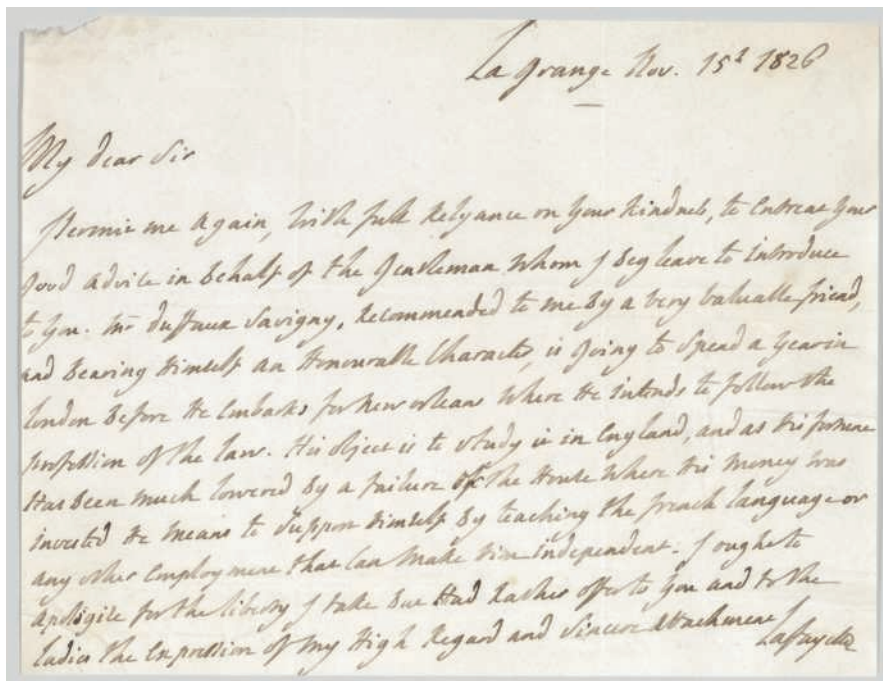 La Grange Nov. 15th 1826
My dear Sir
Permit me Again, With full Relyance on your Kindness, to Entreat your
Good Advice in Behalf of the Gentleman Whom I Beg leave to introduce
to You. Mr Duffaux Savigny, Recommended to me By a very valuable friend,
and Bearing Himself an Honourable Character, is Going to Spend a Year in
London Before He Embarks for New orleans Where He intends to follow the
profession of the law. His object is to Study it in England, and as His fortune
Has Been much lowered By a failure of the House Where His Money Was
invested He means to Support Himself By teaching the french language or
any other Employment that Can Make Him independent. I ought to
Apologize for the liberty I take But Had Rather offer to You and to the
Ladies the Expression of My High Regard and Sincere attachment
Lafayette